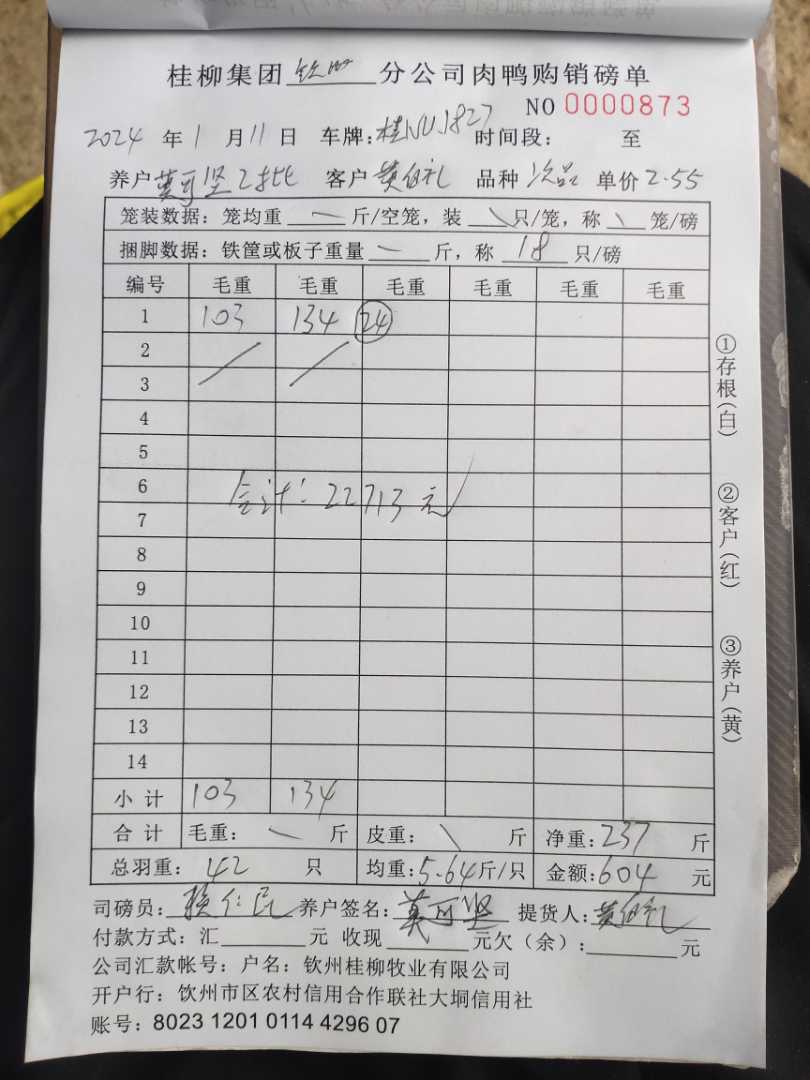 桂柳集团钦州分公司肉鸭购销磅单
NO 0000873
2024 年 1 月 11 日 车牌:桂NU1827 时间段: 至
养户莫可坚2批 客户黄伯礼 品种 次品 单价2.55
笼装数据:笼均重 — 斤/空笼,装 \ 只/笼,称 \ 笼/磅
捆脚数据:铁筐或板子重量 — 斤,称 18 只/磅
编号 毛重 毛重 毛重 毛重 毛重 毛重
1 103 134 24
2
3
4
5
6
合计:22713元
7
8
9
10
11
12
13
14
小计 103 134
合计 毛重: — 斤 皮重: \ 斤 净重:237 斤
总羽重: 42 只 均重:5.64斤/只 金额:604 元
司磅员: 养户签名:莫可坚 提货人:黄伯礼
付款方式:汇 元 收现 元欠(余): 元
公司汇款帐号:户名:钦州桂柳牧业有限公司
开户行:饮州市区农村信用合作联社大垌信用社
账号:8023 1201 0114 4296 07
①存根(白)
②客户(红)
③养户(黄)